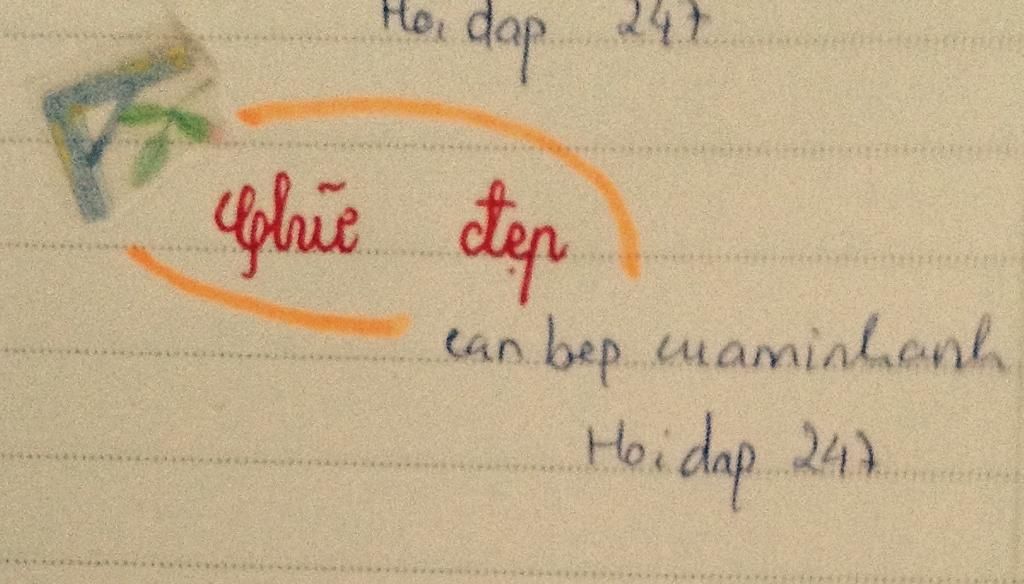 Hoi dap 247
đẹp
can bep cuaminhanh
Hoi dap 247